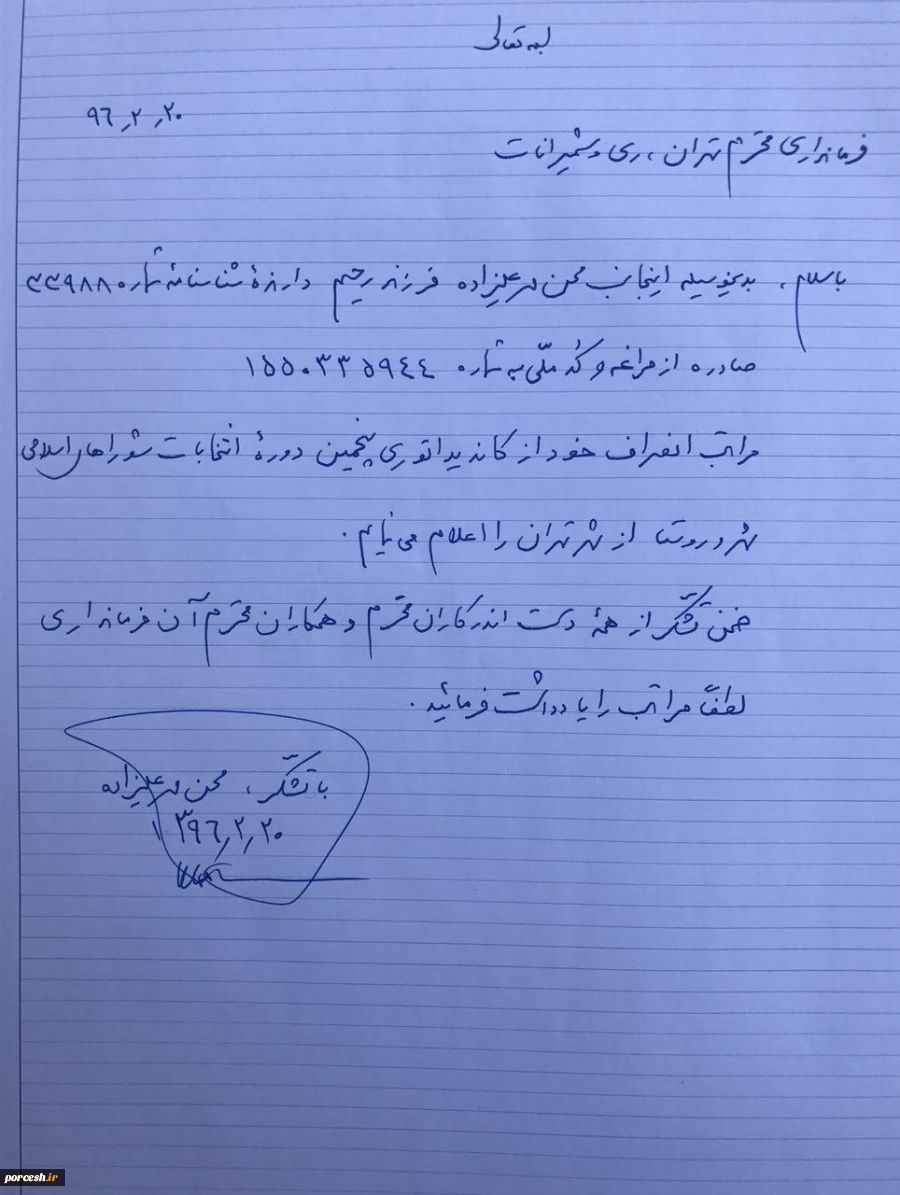 بسمه تعالی
۹٦٫۲٫۲۰
فرمانداری محترم تهران، ری و شمیرانات
باسلام، بدینوسیله اینجانب محسن مهرعلیزاده فرزند رحیم دارندهٔ شناسنامهٔ شماره
صادره از مراغه و کُد ملّی به شماره ۱۵۵۰۳۳۵۹٤٤
مراتب انصراف خود از کاندیداتوری پنجمین دورهٔ انتخابات شوراهای اسلامی
شهر و روستا از شهر تهران را اعلام می نمایم.
ضمن تشکّر از همهٔ دست اندرکاران محترم و همکاران محترم آن فرمانداری
لطفاً مراتب را یادداشت فرمائید.
با تشکّر، محسن مهرعلیزاده
۱۳۹٦٫۲٫۲۰
porcesh.ir